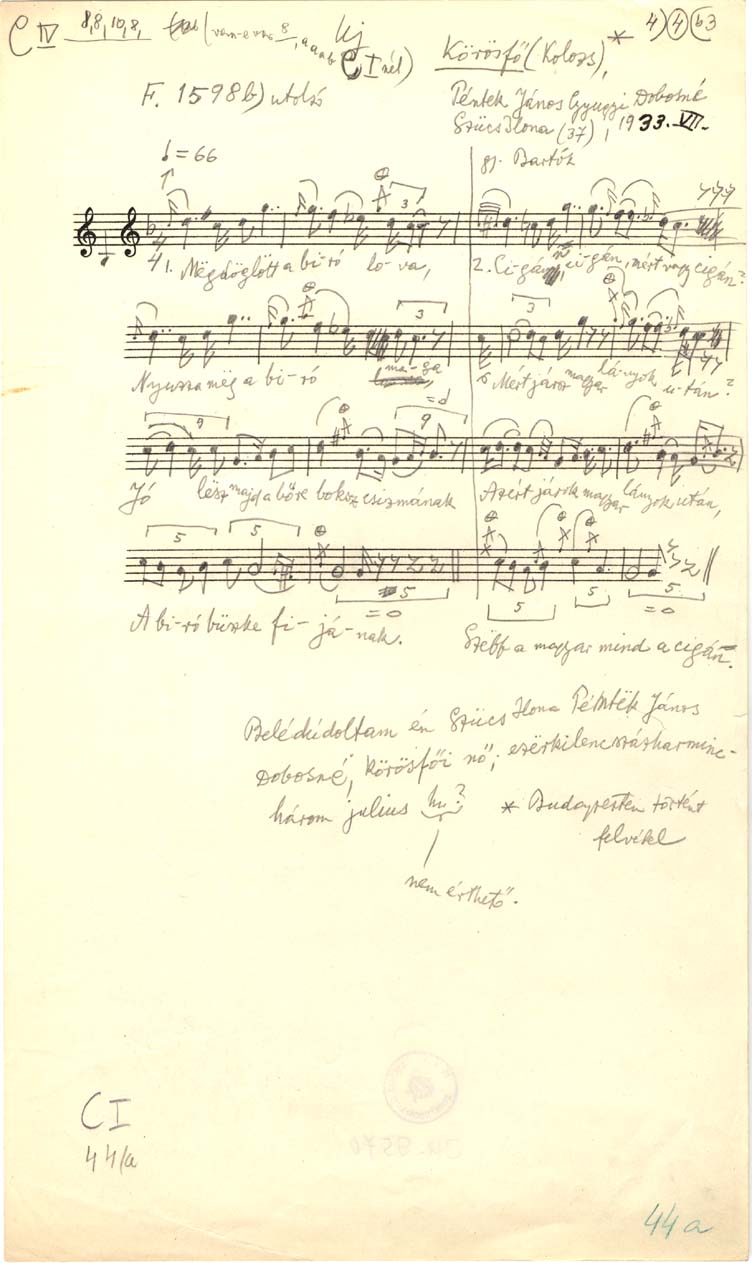 C IV 8, 8, 10, 8, (van-e már 8, a a a b C I nél) Új
4) 4 b3
Körösfő (Kolozs), *
F. 1598b) utolsó
Péntek János Gyugyi Dobosné
Szücs Ilona (37), 1933. VII.
= 66
gy. Bartók
1. Mëgdöglött a bi-ró lo-va,
2. Ci-gány, ci-gán, mért vagy cigán?
3
Nyuzza mëg a bi-ró ma-ga
Mért jársz magyar lányok u-tán?
3
3
9
= d
9
Jó lësz majd a bőre boksz csizmának
Azért járok magyar lányok után,
5
5
5
= o
5
5
5
= o
A bi-ró büszke fi-já-nak.
Szëbb a magyar mind a cigán.
Belédúdoltam én Szücs Ilona Péntëk János
Dobosné, körösfői nő; ezërkilencszázharminc-
három julius hu?
* Budapesten történt
felvétel
nem érthető.
CI
44/a
44a